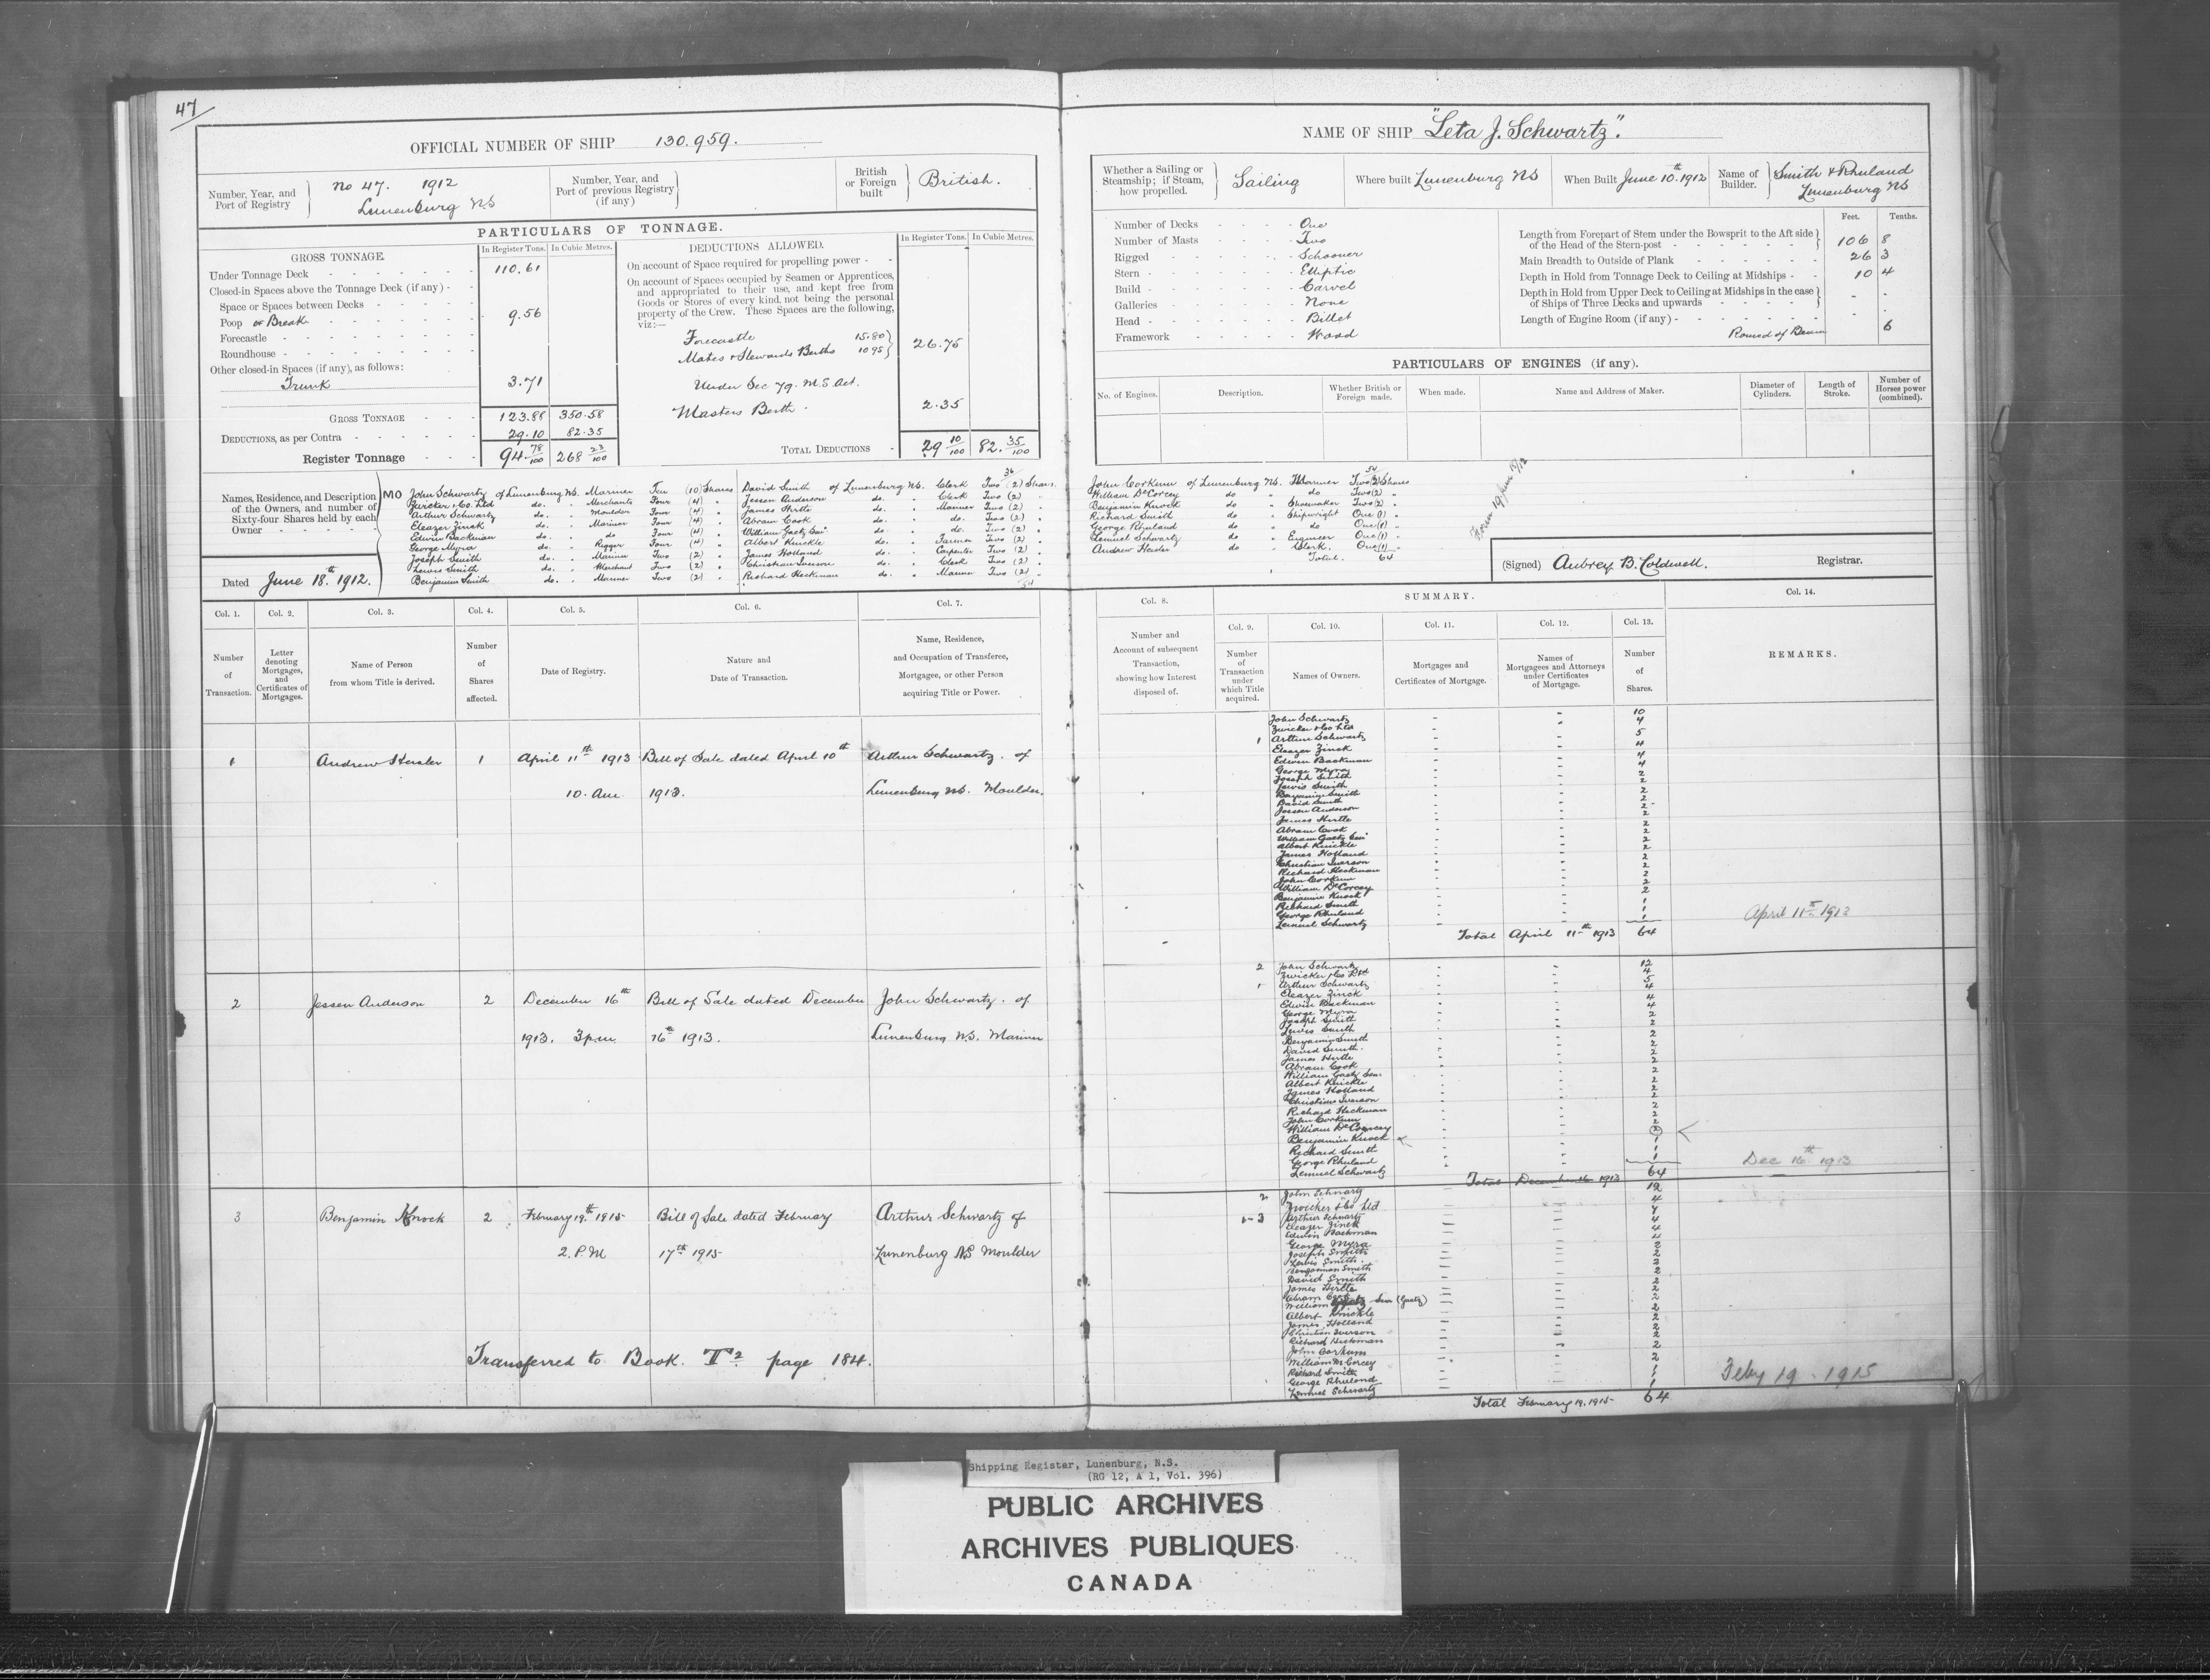 47
OFFICIAL NUMBER OF SHIP 130.959.
Number, Year, and Port of Registry No 47. 1912 Lunenburg NS
Number, Year, and Port of previous Registry (if any)
British or Foreign built British.
PARTICULARS OF TONNAGE.
GROSS TONNAGE. In Register Tons. In Cubic Metres.
Under Tonnage Deck 110.61
Closed-in Spaces above the Tonnage Deck (if any)
Space or Spaces between Decks
Poop or Break 9.56
Forecastle
Roundhouse
Other closed-in Spaces (if any), as follows:
Trunk 3.71
GROSS TONNAGE 123.88 350.58
DEDUCTIONS, as per Contra 29.10 82.35
Register Tonnage 94.78/100 268 23/100
DEDUCTIONS ALLOWED. In Register Tons. In Cubic Metres.
On account of Space required for propelling power
On account of Spaces occupied by Seamen or Apprentices,
and appropriated to their use, and kept free from
Goods or Stores of every kind, not being the personal
property of the Crew. These Spaces are the following,
viz:—
Forecastle 15.80
Mates & Stewards Berths 10.95 26.75
Under Sec 79. M.S. Act.
Masters Berth 2.35
TOTAL DEDUCTIONS 29 10/100 82.35/100
Names, Residence, and Description
of the Owners, and number of
Sixty-four Shares held by each
Owner
MO
John Schwartz of Lunenburg NS. Mariner Ten (10) Shares
Zwicker & Co. Ltd do. Merchants Four (4)
Arthur Schwartz do. Moulder Four (4)
Eleazer Zinck do. Mariner Four (4)
Edwin Backman do. do Four (4)
George Myra do. Rigger Four (4)
Joseph Smith do. Mariner Two (2)
Lewis Smith do. Merchant Two (2)
Benjamin Smith do. Mariner Two (2)
36
David Smith of Lunenburg NS. Clerk Two (2) Shares
Jessen Anderson do. Clerk Two (2)
James Hirtle do. Mariner Two (2)
Abram Cook do. do. Two (2)
William Gaetz Senr do. do. Two (2)
Albert Knickle do. Farmer Two (2)
James Holland do. Carpenter Two (2)
Christian Iverson do. Clerk Two (2)
Richard Heckman do. Mariner Two (2)
54
Dated June 18th. 1912.
NAME OF SHIP "Leta J. Schwartz".
Whether a Sailing or Steamship; if Steam, how propelled. Sailing
Where built Lunenburg NS
When Built June 10th. 1912
Name of Builder. Smith & Rhuland Lunenburg NS
Number of Decks One
Number of Masts Two
Rigged Schooner
Stern Elliptic
Build Carvel
Galleries None
Head Billet
Framework Wood
Feet. Tenths.
Length from Forepart of Stem under the Bowsprit to the Aft side
of the Head of the Stern-post 106 8
Main Breadth to Outside of Plank 26 3
Depth in Hold from Tonnage Deck to Ceiling at Midships 10 4
Depth in Hold from Upper Deck to Ceiling at Midships in the case
of Ships of Three Decks and upwards - -
Length of Engine Room (if any) - -
Round of Beam 6
PARTICULARS OF ENGINES (if any).
No. of Engines. Description. Whether British or Foreign made. When made. Name and Address of Maker. Diameter of Cylinders. Length of Stroke. Number of Horses power (combined).
54
John Corkum of Lunenburg NS. Mariner Two (2) Shares
William DeCorcey do do Two (2)
Benjamin Knock do Shoemaker Two (2)
Richard Smith do Shipwright One (1)
George Rhuland do do One (1)
Lemuel Schwartz do Engineer One (1)
Andrew Heisler do Clerk. One (1)
Total. 64
(Signed) Aubrey B. Coldwell. Registrar.
Col. 1. Col. 2. Col. 3. Col. 4. Col. 5. Col. 6. Col. 7.
Number of Transaction.
Letter denoting Mortgages, and Certificates of Mortgages.
Name of Person from whom Title is derived.
Number of Shares affected.
Date of Registry.
Nature and Date of Transaction.
Name, Residence, and Occupation of Transferee, Mortgagee, or other Person acquiring Title or Power.
1 Andrew Heisler 1 April 11th 1913 Bill of Sale dated April 10th Arthur Schwartz. of
10. Am 1913. Lunenburg NS. Moulder.
2 Jessen Anderson 2 December 16th Bill of Sale dated December John Schwartz. of
1913. 3 p.m. 16th 1913. Lunenburg NS. Mariner
3 Benjamin Knock 2 February 19th 1915 Bill of Sale dated February Arthur Schwartz of
2. P.M 17th 1915 Lunenburg NS Moulder
Transferred to Book. T2 page 184.
Col. 8. SUMMARY. Col. 14.
Col. 9. Col. 10. Col. 11. Col. 12. Col. 13.
Number and Account of subsequent Transaction, showing how Interest disposed of.
Number of Transaction under which Title acquired.
Names of Owners.
Mortgages and Certificates of Mortgage.
Names of Mortgagees and Attorneys under Certificates of Mortgage.
Number of Shares.
REMARKS.
John Schwartz 10
Zwicker & Co Ltd 4
1 Arthur Schwartz 5
Eleazer Zinck 4
Edwin Backman 4
George Myra 4
Joseph Smith 2
Lewis Smith 2
Benjamin Smith 2
David Smith 2
Jessen Anderson 2
James Hirtle 2
Abram Cook 2
William Gaetz Senr 2
Albert Knickle 2
James Holland 2
Christian Iverson 2
Richard Heckman 2
John Corkum 2
William DeCorcey 2
Benjamin Knock 2
Richard Smith 1
George Rhuland 1
Lemuel Schwartz 1
Total April 11th 1913 64
April 11th 1913
2 John Schwartz 12
Zwicker & Co Ltd 4
1 Arthur Schwartz 5
Eleazer Zinck 4
Edwin Backman 4
George Myra 4
Joseph Smith 2
Lewis Smith 2
Benjamin Smith 2
David Smith 2
James Hirtle 2
Abram Cook 2
William Gaetz Senr 2
Albert Knickle 2
James Holland 2
Christian Iverson 2
Richard Heckman 2
John Corkum 2
William DeCorcey 2
Benjamin Knock 2
Richard Smith 1
George Rhuland 1
Lemuel Schwartz 1
Total December 16 1913 64
Dec 16th 1913
2 John Schwartz 12
Zwicker & Co Ltd 4
1-3 Arthur Schwartz 7
Eleazer Zinck 4
Edwin Backman 4
George Myra 4
Joseph Smith 2
Lewis Smith 2
Benjaman Smith 2
David Smith 2
James Hirtle 2
Abram Cook 2
William Senr (Gaetz) 2
Albert Knickle 2
James Holland 2
Christian Iverson 2
Richard Heckman 2
John Corkum 2
William DeCorcey 2
Richard Smith 1
George Rhuland 1
Lemuel Schwartz 1
Total February 19. 1915 64
Feby 19 - 1915
Shipping Register, Lunenburg, N.S.
(RG 12, A 1, Vol. 396)
PUBLIC ARCHIVES
ARCHIVES PUBLIQUES
CANADA